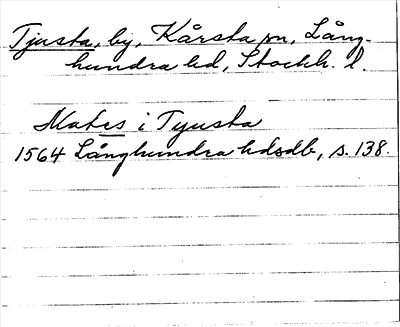 Tjusta, by, Kårsta sn, Lång-
hundra hd, Stockh. l.
Mates i Tyusta
1564 Långhundra hdsdb, s. 138.